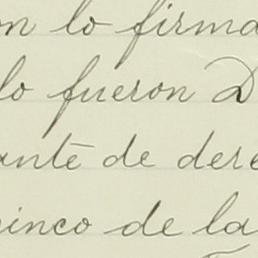 on lo firma
lo fueron D
ante de dere
cinco de la